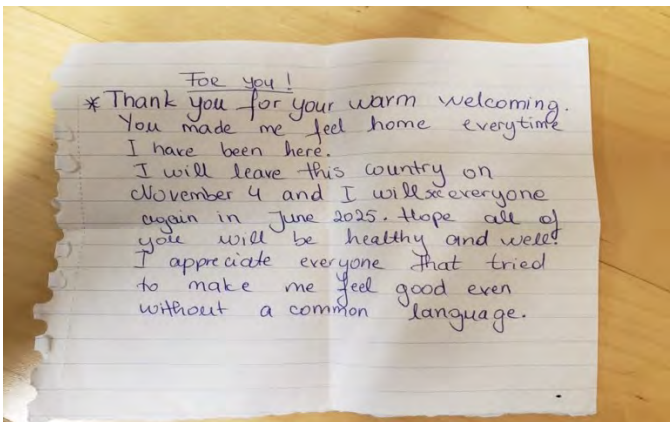 For you!
* Thank you for your warm welcoming.
You made me feel home everytime
I have been here.
I will leave this country on
November 4 and I will see everyone
again in June 2025. Hope all of
you will be healthy and well!
I appreciate everyone that tried
to make me feel good even
without a common language.